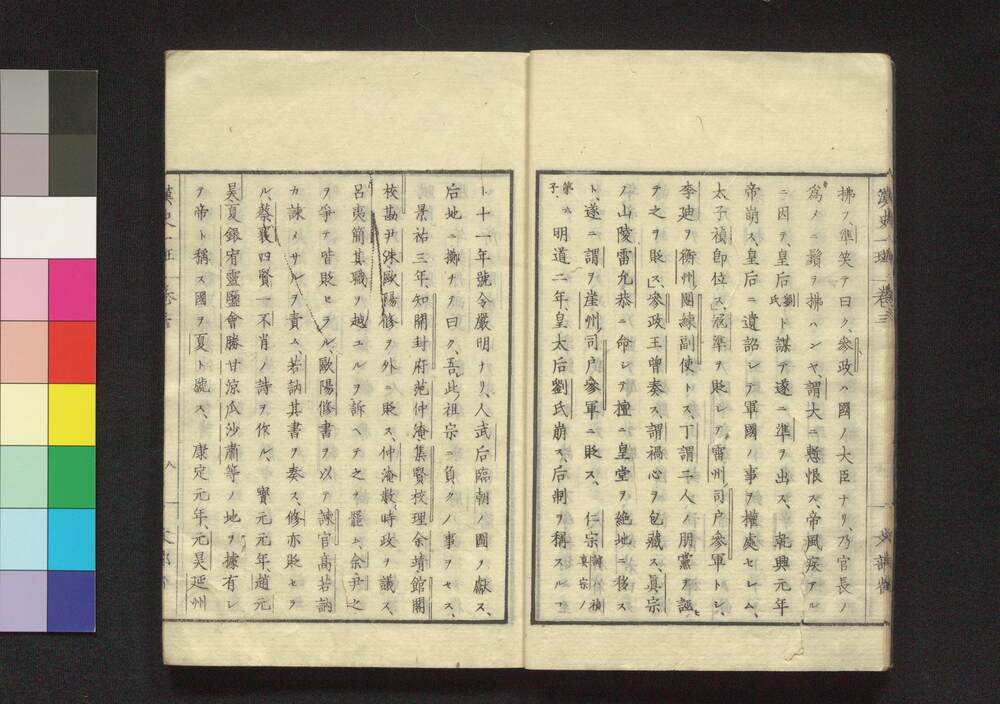 漢史一班 卷三
拂フ、準笑テ曰ク、參政ハ國ノ大臣ナリ、乃官長ノ
為メニ鬚ヲ拂ハンヤ、謂大ニ慙恨ス、帝風疾アル
ニ因テ、皇后劉氏ト謀テ遂ニ準ヲ出ス、乾興元年
帝崩ス、皇后ニ遺詔シテ軍國ノ事ヲ權處セシム、
太子禎卽位ス、寇準ヲ貶シテ雷州司户參軍トシ、
李廸ヲ衡州團練副使トス、丁謂二人ノ朋黨ヲ誣ヒ
テ之ヲ貶ス、參政王曾奏ス、謂禍心ヲ包藏ス、眞宗
ノ山陵雷允恭ニ命シテ擅ニ皇堂ヲ絶地ニ移ス
ト、遂ニ謂ヲ崖州司户參軍ニ貶ス、 仁宗諱ハ禎眞宗ノ
第六子、 明道二年、皇太后劉氏崩ス、后制ヲ稱スルコ
ト十一年號令嚴明ナリ、人武后臨朝ノ圖ヲ獻ス、
后地ニ擲ヲ曰ク、吾此祖宗ニ負クノ事ヲセス、
景祐三年、知開封府范仲淹集賢校理余靖館閣
校勘尹洙歐陽修ヲ外ニ貶ス、仲淹數時政ヲ議ス、
呂夷簡其職ヲ越ユルヲ訴ヘテ之ヲ罷ム、余尹之
ヲ爭テ皆貶セラル、歐陽修書ヲ以テ諫官高若訥
カ諫メサルヲ責ム、若訥其書ヲ奏ス、修亦貶セラ
ル、蔡襄四賢一不肖ノ詩ヲ作ル、 寶元元年、趙元
昊夏銀宥靈鹽會勝甘涼瓜沙肅等ノ地ヲ據有シ
ヲ帝ト稱ス國ヲ夏ト號ス、 康定元年、元昊延州
漢史一班 卷三
八